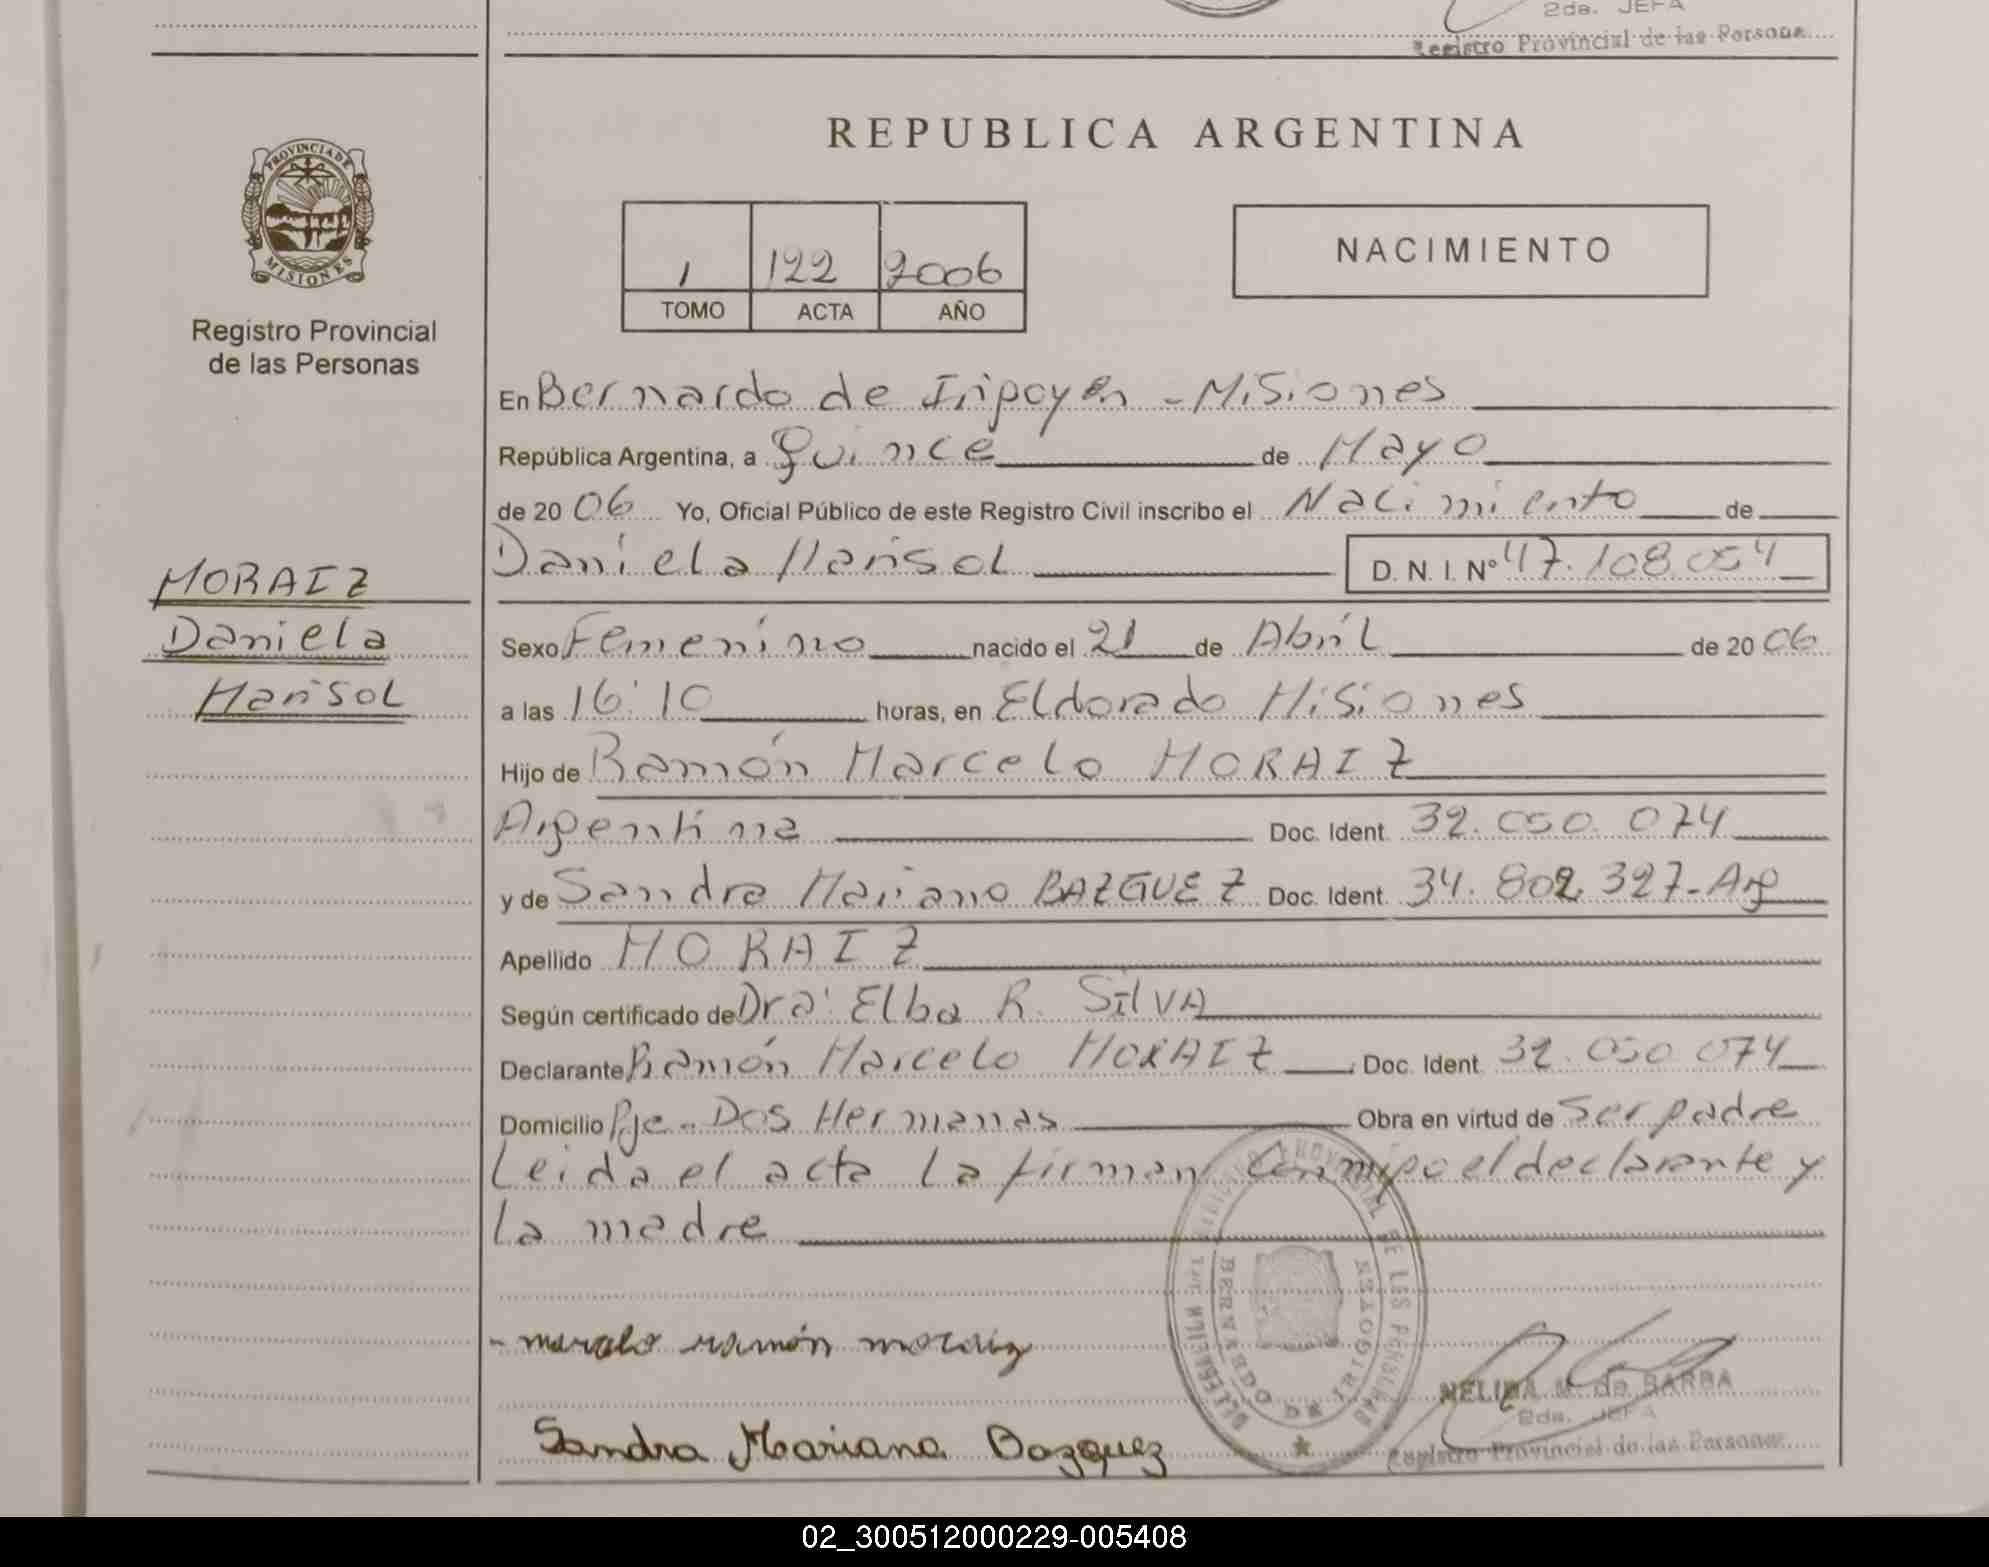 2da. JEFA
Registro Provincial de las Persona
PROVINCIA DE
MISIONES
Registro Provincial
de las Personas
REPUBLICA ARGENTINA
1 122 2006
TOMO ACTA AÑO
NACIMIENTO
En Bernardo de Irigoyen - Misiones
República Argentina, a Quince de Mayo
de 20 06 Yo, Oficial Público de este Registro Civil inscribo el Nacimiento de
Daniela Marisol D. N. I. Nº 47.108.054
MORAIZ
Daniela
Marisol
Sexo Femenino nacido el 21 de Abril de 20 06
a las 16:10 horas, en Eldorado Misiones
Hijo de Ramón Marcelo MORAIZ
Argentina Doc. Ident. 32.050.074
y de Sandra Mariano BAZGUEZ Doc. Ident. 34.802.327-Arg
Apellido MORAIZ
Según certificado de Dra: Elba R. SilVA
Declarante Ramón Marcelo MORAIZ Doc. Ident. 32.050.074
Domicilio Pje- Dos Hermanas Obra en virtud de Ser padre
Leida el acta La firman Conmigo el declarante y
La madre
- marcelo ramón moraiz
Sandra Mariana Bazquez
NELIDA M. de BARBA
2da. JEFA
Registro Provincial de las Personas
02_300512000229-005408